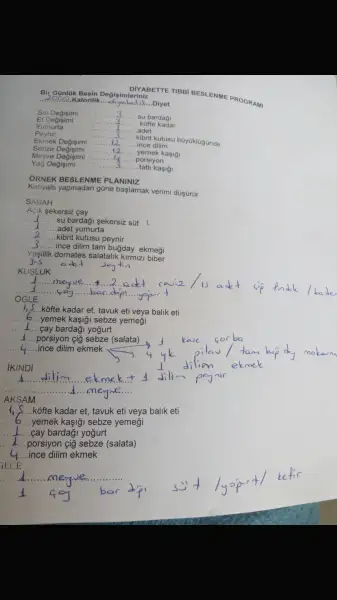 DİYABETTE TIBBİ BESLENME PROGRAMI
Bir Günlük Besin Değişimleriniz
2000 Kalorilik diyabetik Diyet
Süt Değişimi 3 su bardağı
Et Değişimi 3 köfte kadar
Yumurta 1 adet
Peynir kibrit kutusu büyüklüğünde
Ekmek Değişimi 12 ince dilim
Sebze Değişimi 12 yemek kaşığı
Meyve Değişimi 4 porsiyon
Yağ Değişimi 3 tatlı kaşığı
ÖRNEK BESLENME PLANINIZ
Kahvaltı yapmadan güne başlamak verimi düşürür
SABAH
Açık şekersiz çay
1 su bardağı şekersiz süt
1 adet yumurta
2 kibrit kutusu peynir
3 ince dilim tam buğday ekmeği
Yeşillik domates salatalık kırmızı biber
3-5 adet zeytin
KUŞLUK
1 meyve + 2 adet ceviz / 15 adet çiğ fındık
1 çay bardağı yoğurt
ÖĞLE
1,5 köfte kadar et, tavuk eti veya balık eti
6 yemek kaşığı sebze yemeği
1 çay bardağı yoğurt
1 porsiyon çiğ sebze (salata) 1 kase çorba
4 ince dilim ekmek 4 yk pilav / tam buğday makarna
1 dilim ekmek
İKİNDİ
1 dilim ekmek + 1 dilim peynir
1 meyve
AKŞAM
1,5 köfte kadar et, tavuk eti veya balık eti
6 yemek kaşığı sebze yemeği
1 çay bardağı yoğurt
1 porsiyon çiğ sebze (salata)
4 ince dilim ekmek
GECE
1 meyve
1 çay bardağı süt / yoğurt / kefir